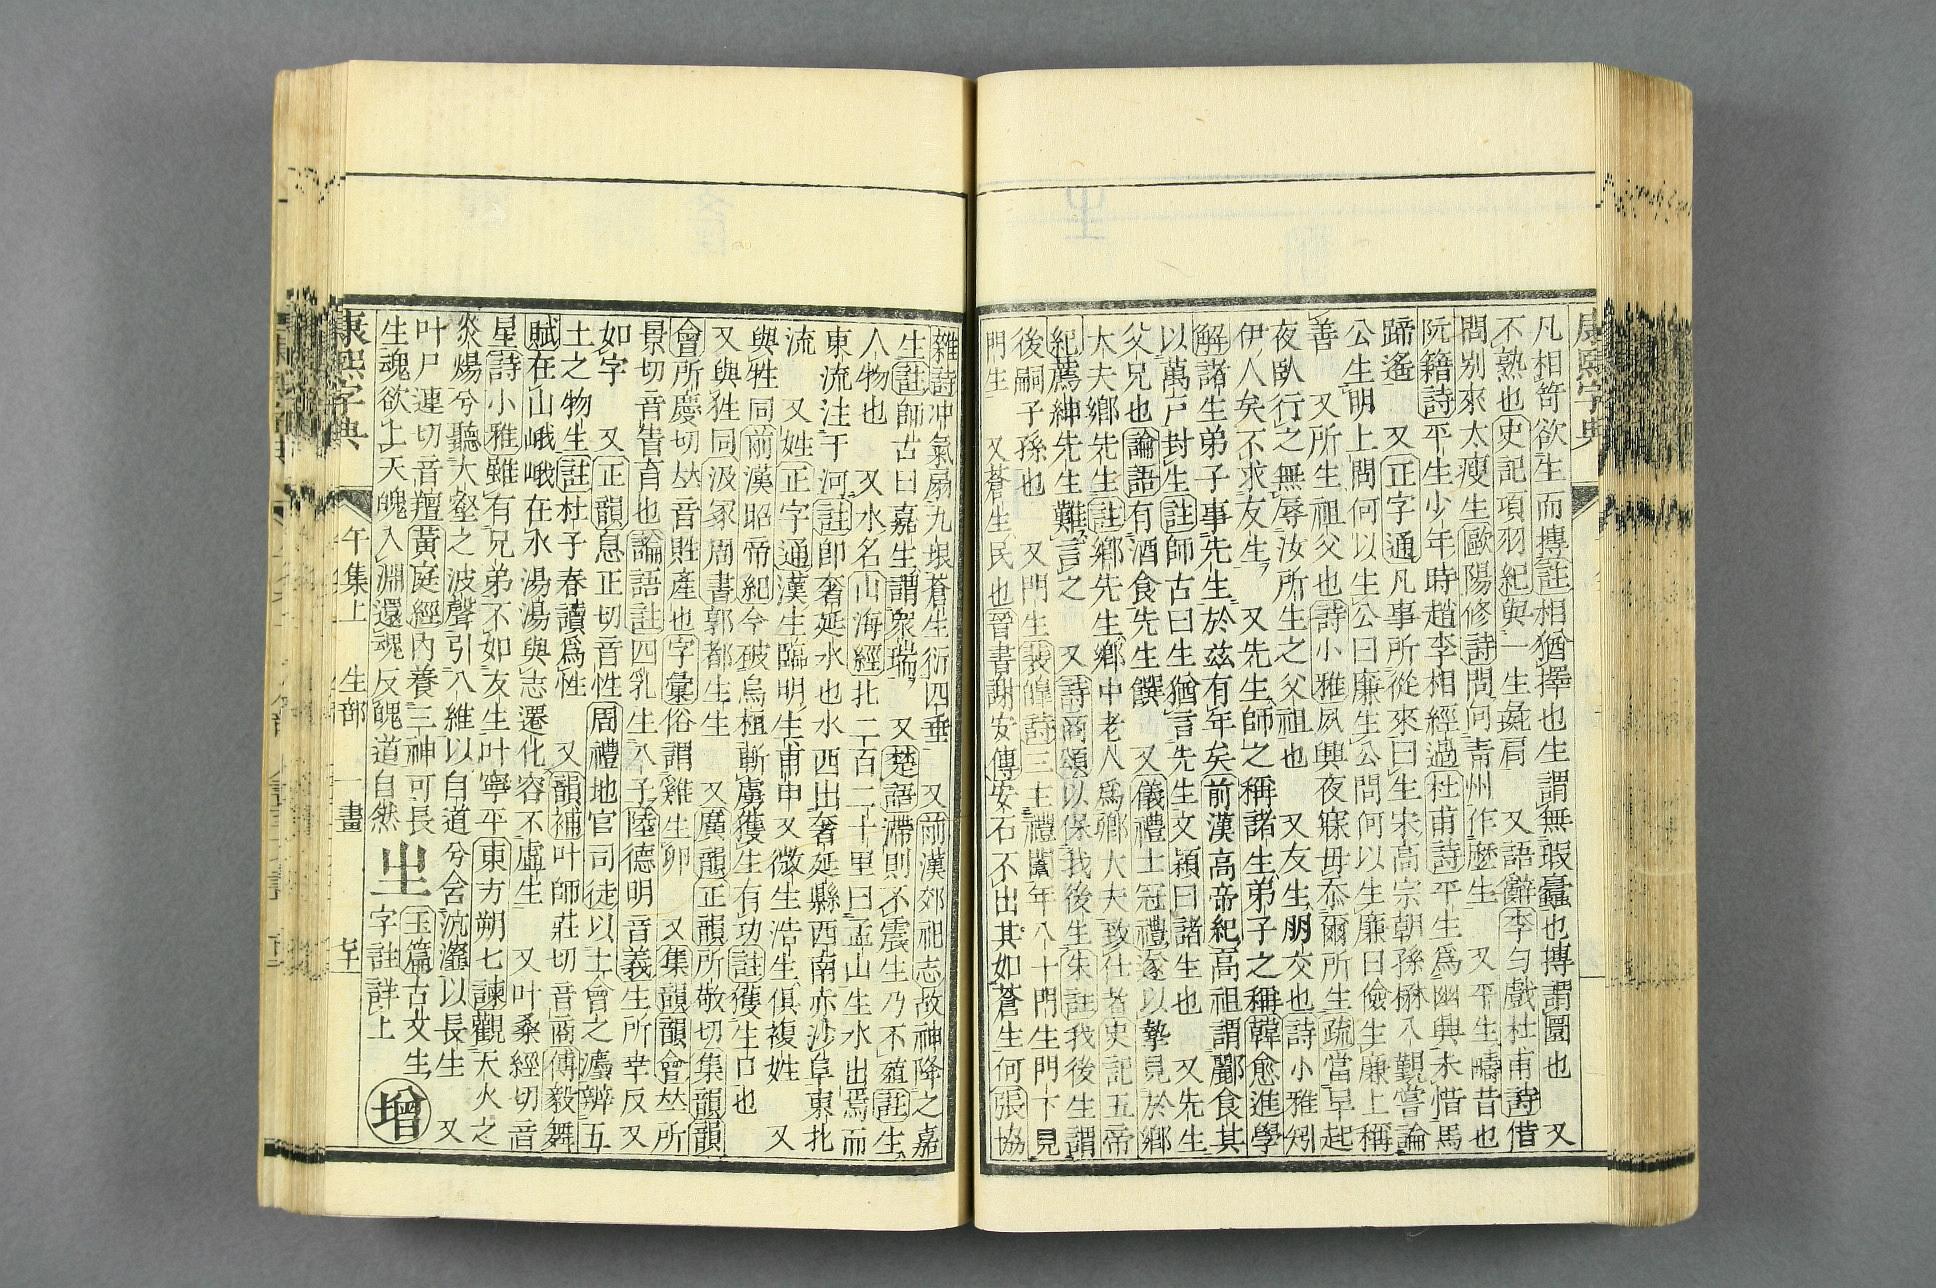 康熙字典
凡相笴欲生而摶註相猶擇也生謂無瑕蠹也摶謂圜也　又
不熟也史記項羽紀與一生彘肩　又語辭李勻戲杜甫詩借
問別來太瘦生歐陽修詩問向靑州作麽生　又平生疇昔也
阮籍詩平生少年時趙李相經過杜甫詩平生爲幽興未惜馬
蹄遙　又正字通凡事所從來曰生宋高宗朝孫楙入覲嘗論
公生明上問何以生公曰廉生公問何以生廉曰儉生廉上稱
善　又所生祖父也詩小雅夙興夜寐毋忝爾所生疏當早起
夜臥行之無辱汝所生之父祖也　又友生朋友也詩小雅矧
伊人矣不求友生　又先生師之稱諸生弟子之稱韓愈進學
解諸生弟子事先生於茲有年矣前漢高帝紀高祖謂酈食其
以萬戸封生註師古曰生猶言先生文穎曰諸生也　又先生
父兄也論語有酒食先生饌　又儀禮士冠禮遂以摯見於鄉
大夫鄉先生註鄉先生鄉中老人爲鄉大夫致仕者史記五帝
紀薦紳先生難言之　又詩商頌以保我後生朱註我後生謂
後嗣子孫也　又門生裴皞詩三主禮闈年八十門生門下見
門生　又蒼生民也晉書謝安傳安石不出其如蒼生何張協
雜詩冲氣扇九垠蒼生衍四垂　又前漢郊祀志故神降之嘉
生註師古曰嘉生謂衆瑞　又楚語滯則不震生乃不殖註生
人物也　又水名山海經北二百二十里曰盂山生水出焉而
東流注于河註卽奢延水也水西出奢延縣西南赤沙阜東北
流　又姓正字通漢生臨明生甫申又微生浩生俱複姓　又
與牲同前漢昭帝紀令破烏桓斬虜獲生有功註獲生口也
又與狌同汲冢周書郭都生生　又廣韻正韻所敬切集韻韻
會所慶切𠀤音貹產也字彙俗謂雞生卵　又集韻韻會𠀤所
景切音眚育也論語註四乳生八子陸德明音義生所幸反又
如字　又正韻息正切音性周禮地官司徒以土會之灋辨五
土之物生註杜子春讀爲性　又韻補叶師莊切音商傅毅舞
賦在山峨峨在水湯湯與志遷化容不虛生　又叶桑經切音
星詩小雅雖有兄弟不如友生叶寧平東方朔七諫觀天火之
炎煬兮聽大壑之波聲引八維以自道兮含沆瀣以長生　又
叶尸連切音羶黃庭經內養三神可長生
生魂欲上天魄入淵還魂反魄道自然　𤯓玉篇古文生字註詳上　增
康熙字典　午集上　生部　一畫